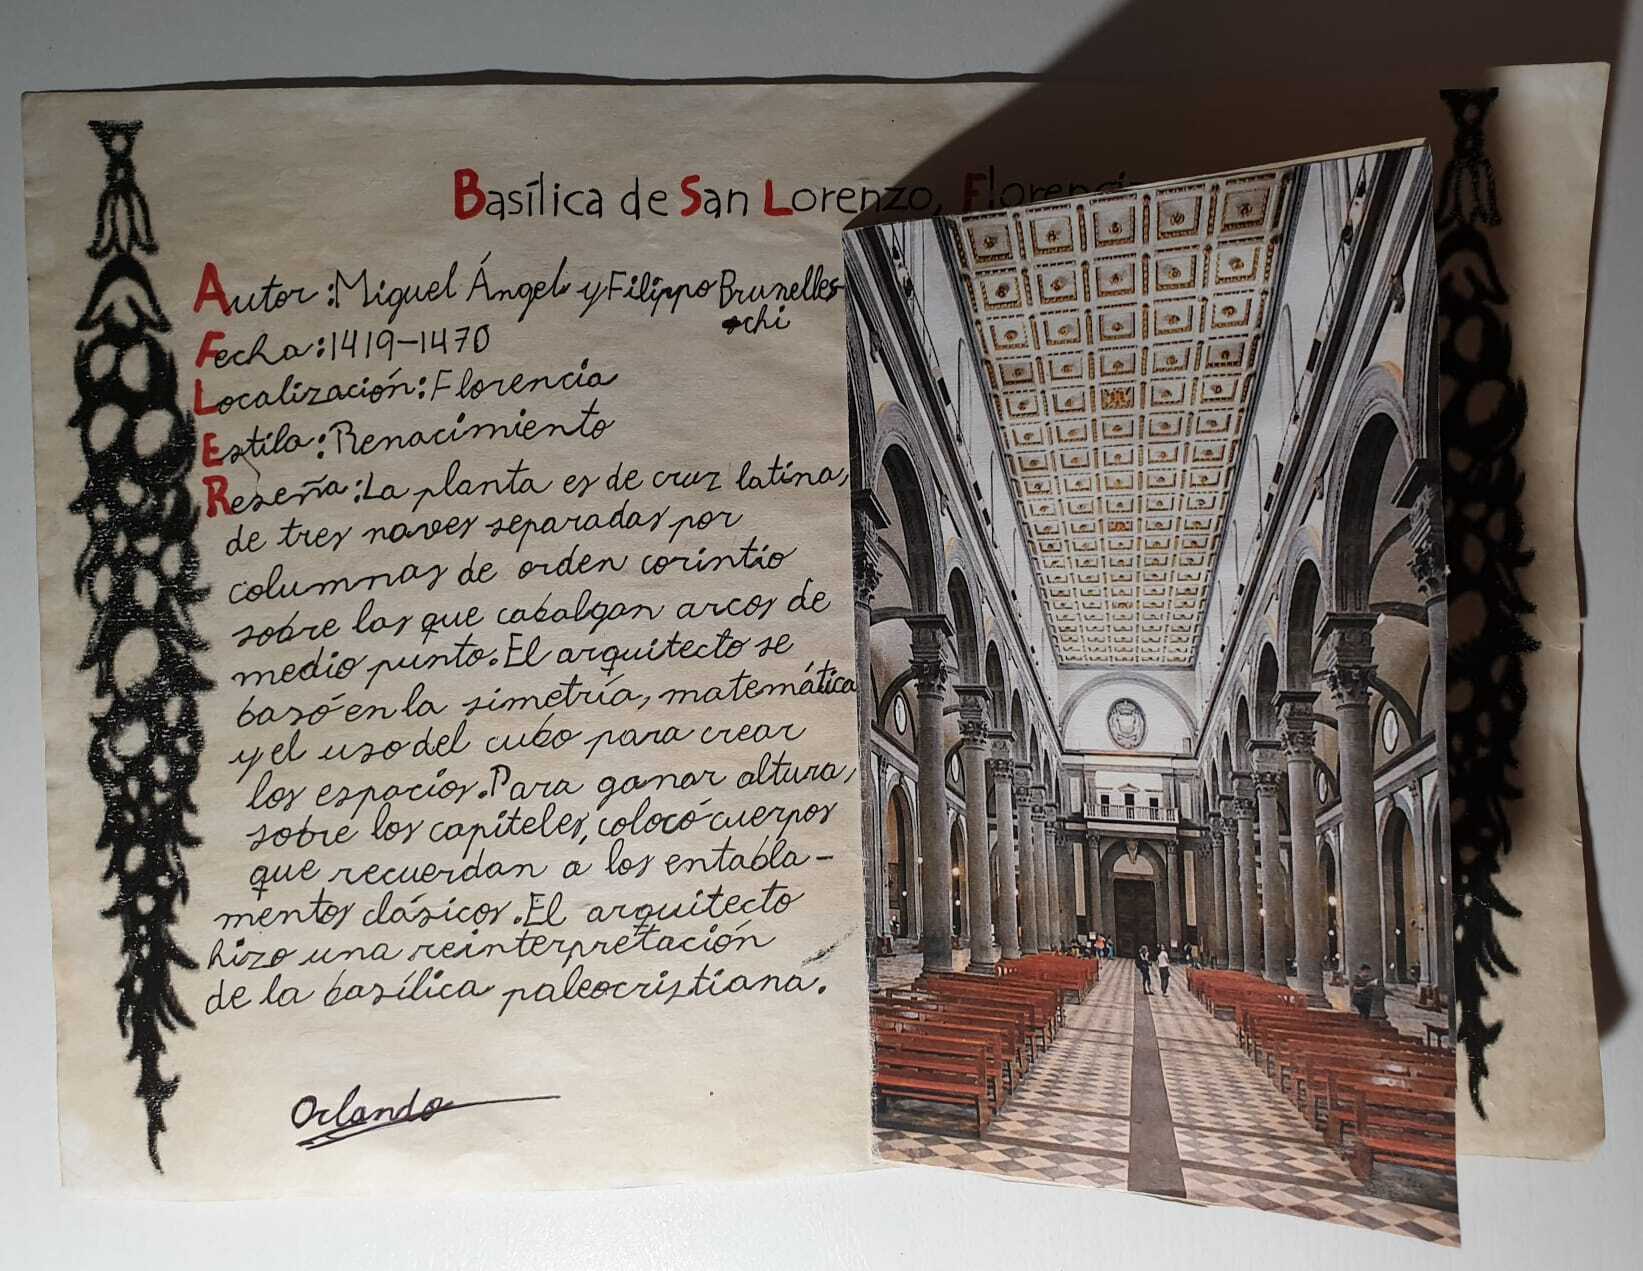 Basílica de San Lorenzo, Florenci
Autor: Miguel Ángel y Filippo Brunelles-
chi
Fecha: 1419-1470
Localización: Florencia
Estilo: Renacimiento
Reseña: La planta es de cruz latina,
de tres naves separadas por
columnas de orden corintio
sobre las que cabalgan arcos de
medio punto. El arquitecto se
basó en la simetría, matemática
y el uso del cubo para crear
los espacios. Para ganar altura,
sobre los capiteles, colocó cuerpos
que recuerdan a los entabla-
mentos clásicos. El arquitecto
hizo una reinterpretación
de la basílica paleocristiana.
Orlando